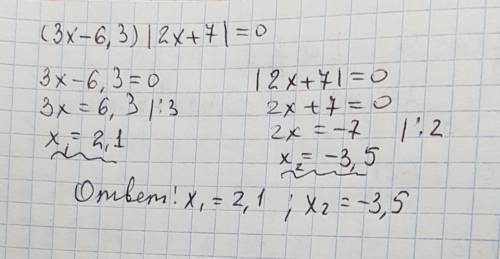 (3x-6,3)|2x+7|=0
3x-6,3=0
3x=6,3 |:3
x₁=2,1
|2x+7|=0
2x+7=0
2x=-7 |:2
x₂=-3,5
Ответ: x₁=2,1 ; x₂=-3,5